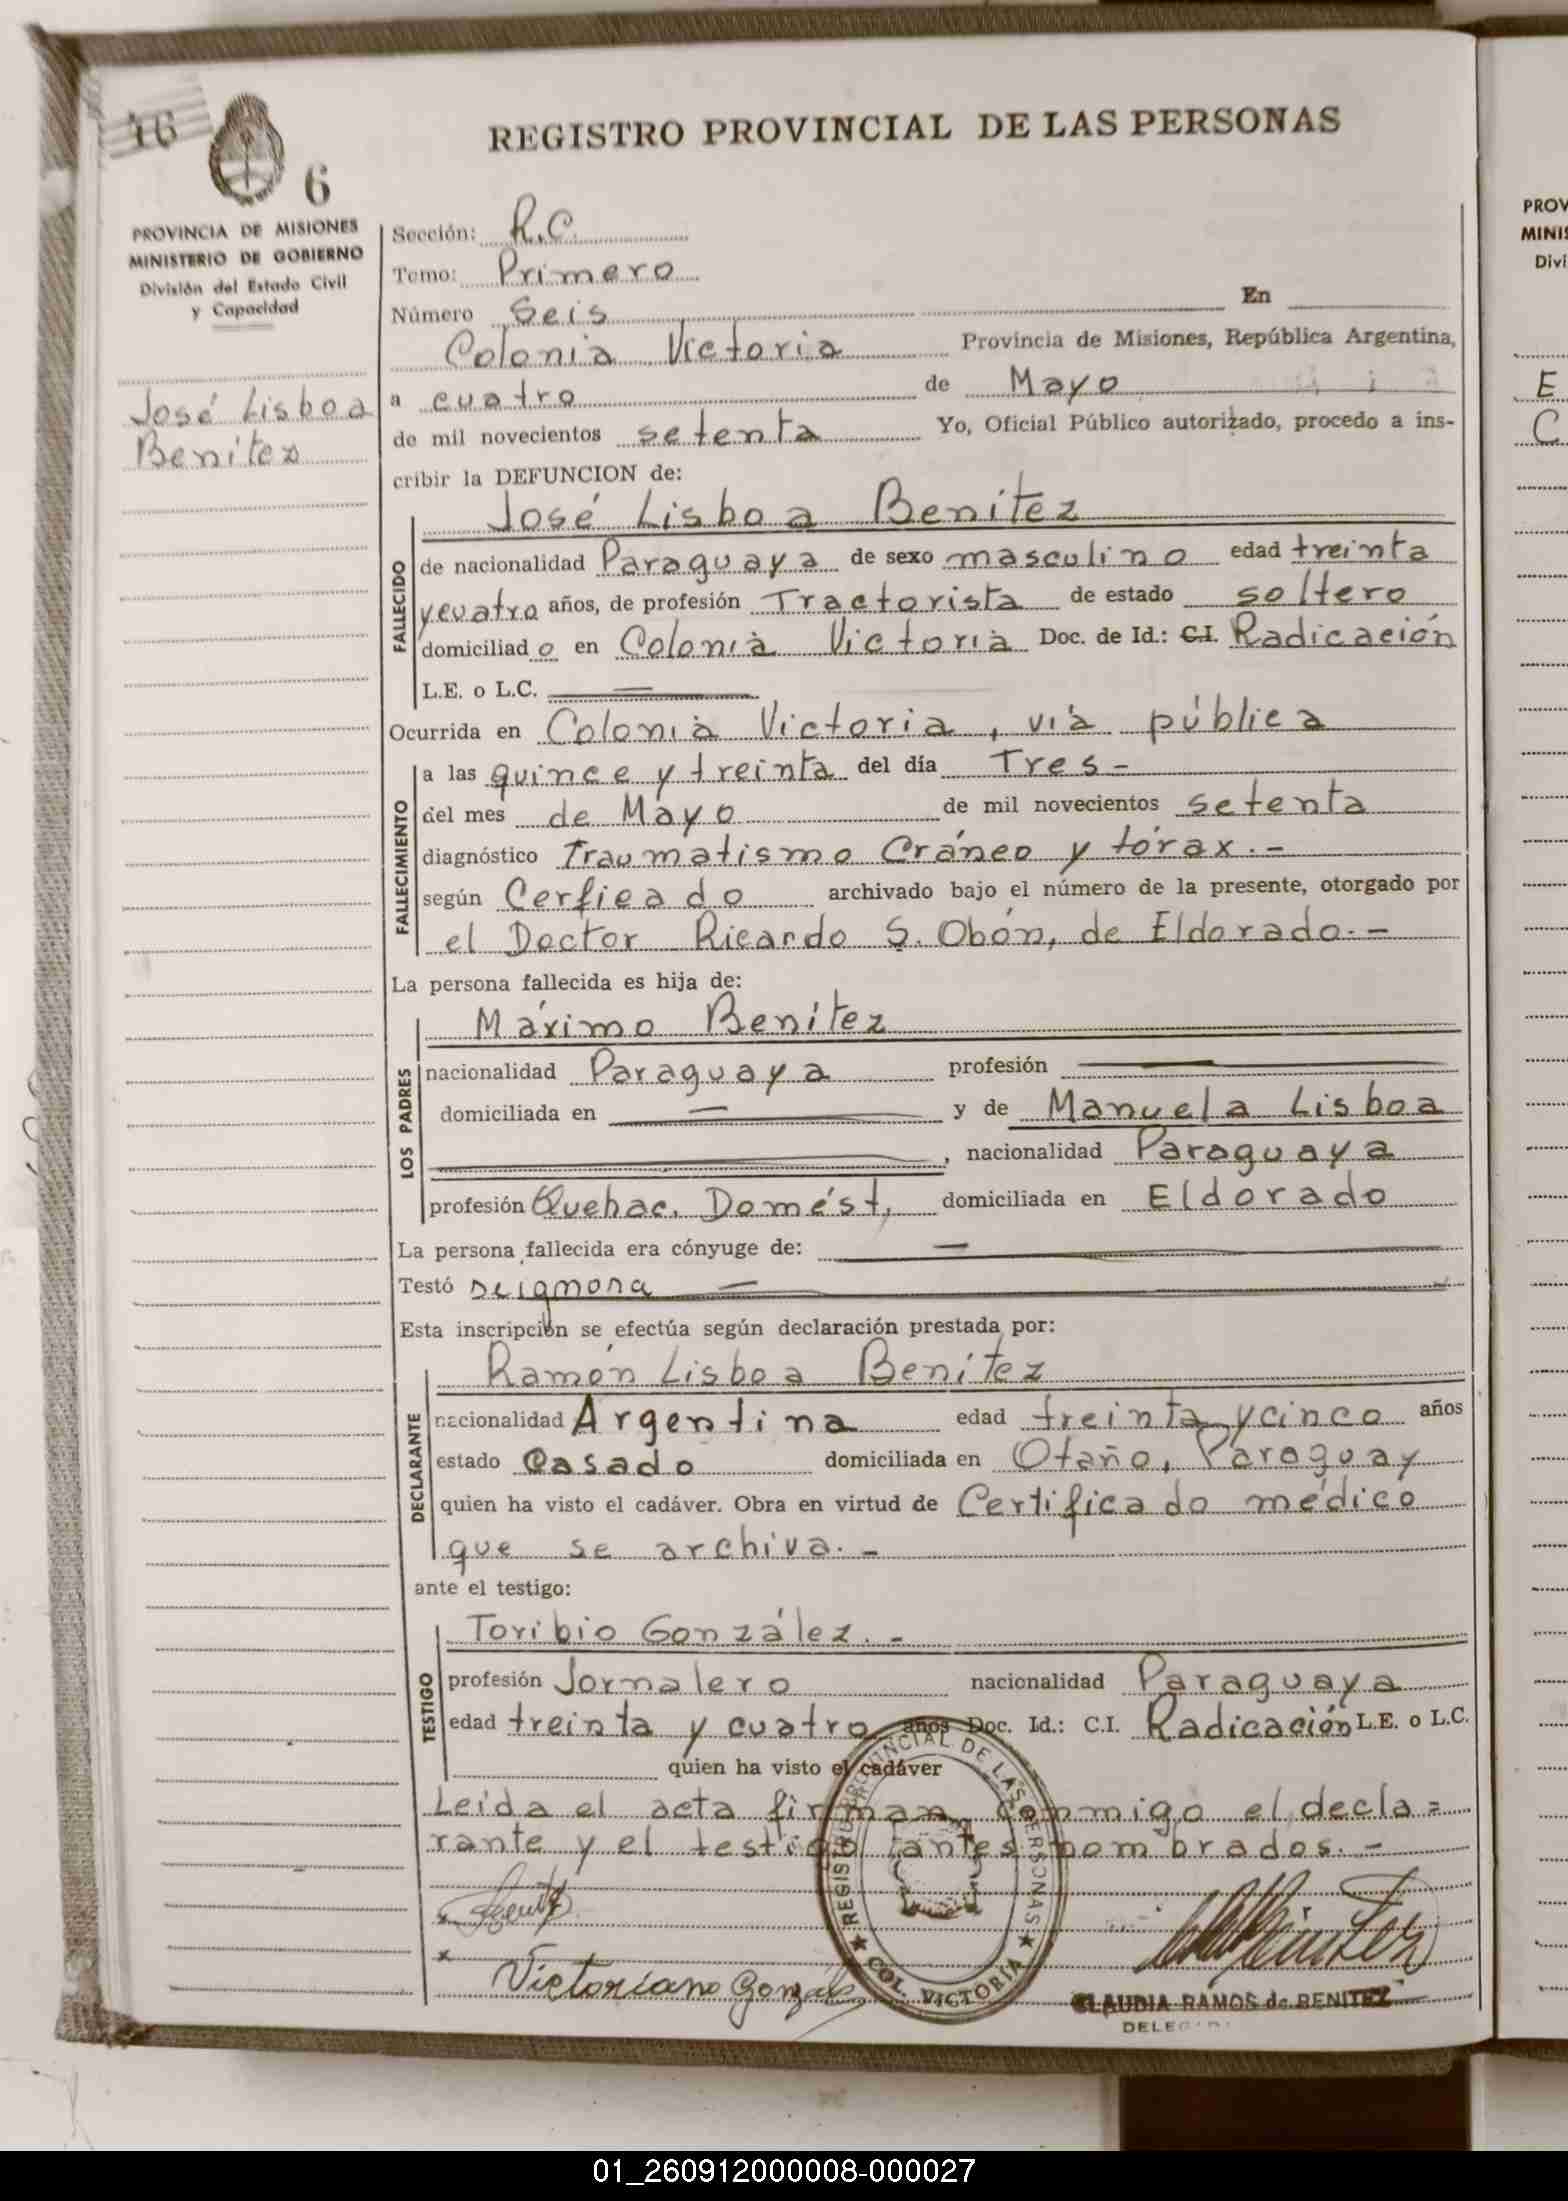 16
6
REGISTRO PROVINCIAL DE LAS PERSONAS
PROVINCIA DE MISIONES
MINISTERIO DE GOBIERNO
División del Estado Civil
y Capacidad
José Lisboa
Benítez
Sección: R.C.
Tomo: Primero
Número Seis En
Colonia Victoria Provincia de Misiones, República Argentina,
a cuatro de Mayo
de mil novecientos setenta Yo, Oficial Público autorizado, procedo a ins-
cribir la DEFUNCION de:
José Lisboa Benítez
FALLECIDO
de nacionalidad Paraguaya de sexo masculino edad treinta
y cuatro años, de profesión Tractorista de estado soltero
domiciliado en Colonia Victoria Doc. de Id.: C.I. Radicación
L.E. o L.C. —
Ocurrida en Colonia Victoria, vía pública
FALLECIMIENTO
a las quince y treinta del día Tres -
del mes de Mayo de mil novecientos setenta
diagnóstico Traumatismo Cráneo y tórax. -
según Cerficado archivado bajo el número de la presente, otorgado por
el Doctor Ricardo S. Obón, de Eldorado. -
La persona fallecida es hija de:
LOS PADRES
Máximo Benítez
nacionalidad Paraguaya profesión —
domiciliada en — y de Manuela Lisboa
, nacionalidad Paraguaya
profesión Quehac. Domést. domiciliada en Eldorado
La persona fallecida era cónyuge de: —
Testó se ignora —
Esta inscripción se efectúa según declaración prestada por:
DECLARANTE
Ramón Lisboa Benítez
nacionalidad Argentina edad treinta y cinco años
estado Casado domiciliada en Otaño, Paraguay
quien ha visto el cadáver. Obra en virtud de Certificado médico
que se archiva. -
ante el testigo:
TESTIGO
Toribio González. -
profesión Jornalero nacionalidad Paraguaya
edad treinta y cuatro años Doc. Id.: C.I. Radicación L.E. o L.C.
quien ha visto el cadáver
Leída el acta firman conmigo el decla=
rante y el testigo antes nombrados. -
x
x Victoriano Gonzáls
REGISTRO PROVINCIAL DE LAS PERSONAS
COL. VICTORIA
CLAUDIA RAMOS de BENITEZ
DELEG
PROV
MINIS
Divi
E
C
01_260912000008-000027